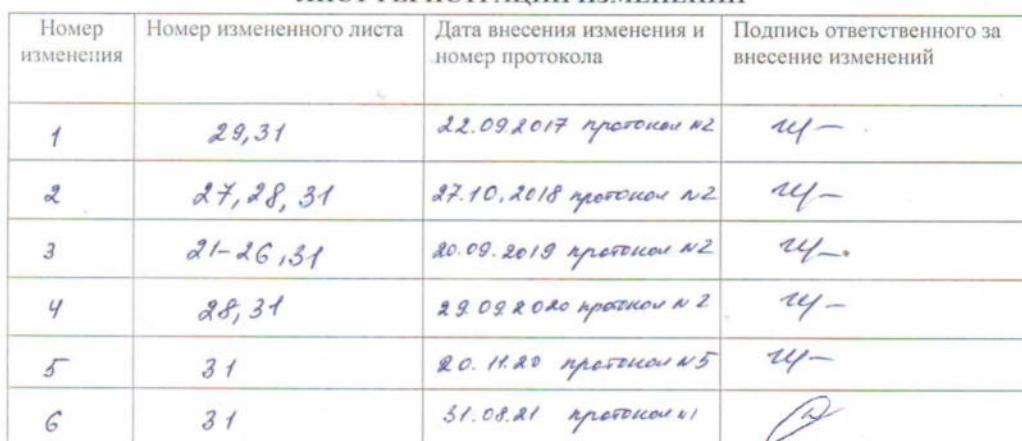 ЛИСТ РЕГИСТРАЦИИ ИЗМЕНЕНИЙ
Номер изменения Номер измененного листа Дата внесения изменения и номер протокола Подпись ответственного за внесение изменений
1 29,31 22.09.2017 протокол N2
2 27, 28, 31 27.10.2018 протокол N2
3 21-26,31 20.09.2019 протокол N2
4 28,31 29.09.2020 протокол N 2
5 31 20.11.20 протокол N5
6 31 31.08.21 протокол N1